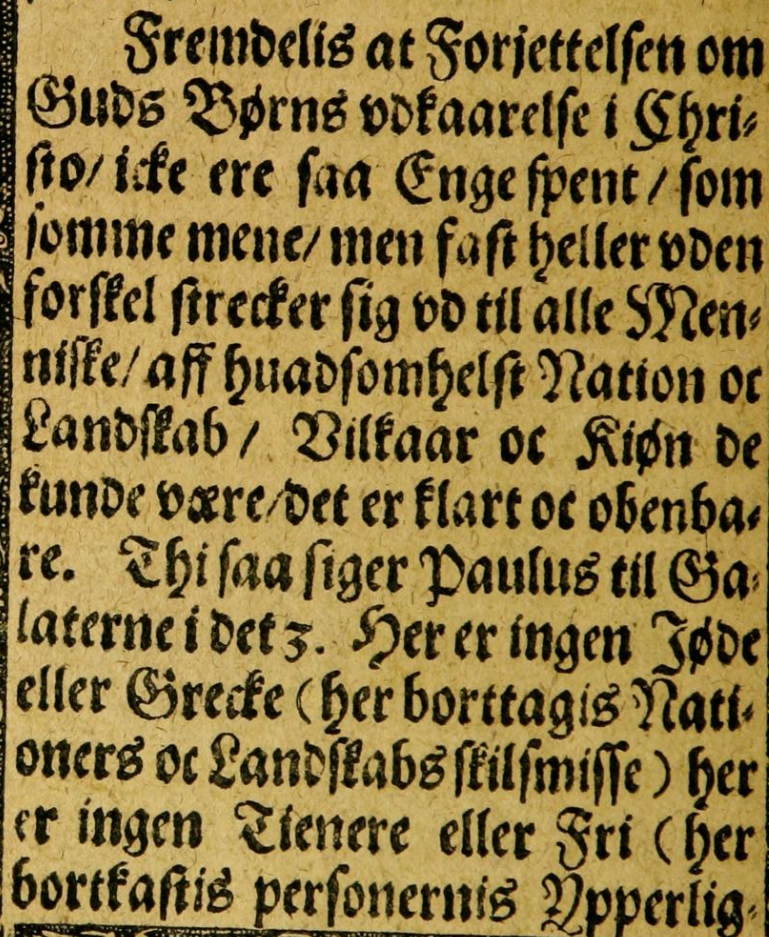 Fremdelis at Forjettelsen om
Guds Børns vdkaarelse i Chri-
sto/ icke ere saa Enge spent / som
somme mene/ men fast heller vden
forskel strecker sig vd til alle Men-
niske/ aff huadsomhelst Nation oc
Landskab / Vilkaar oc Kiøn de
kunde være/ det er klart oc obenba-
re. Thi saa siger Paulus til Ga-
laterne i det 3. Her er ingen Jøde
eller Grecke (her borttagis Nati-
oners oc Landskabs skilsmisse) her
er ingen Tienere eller Fri (her
bortkastis personernis Ypperlig-